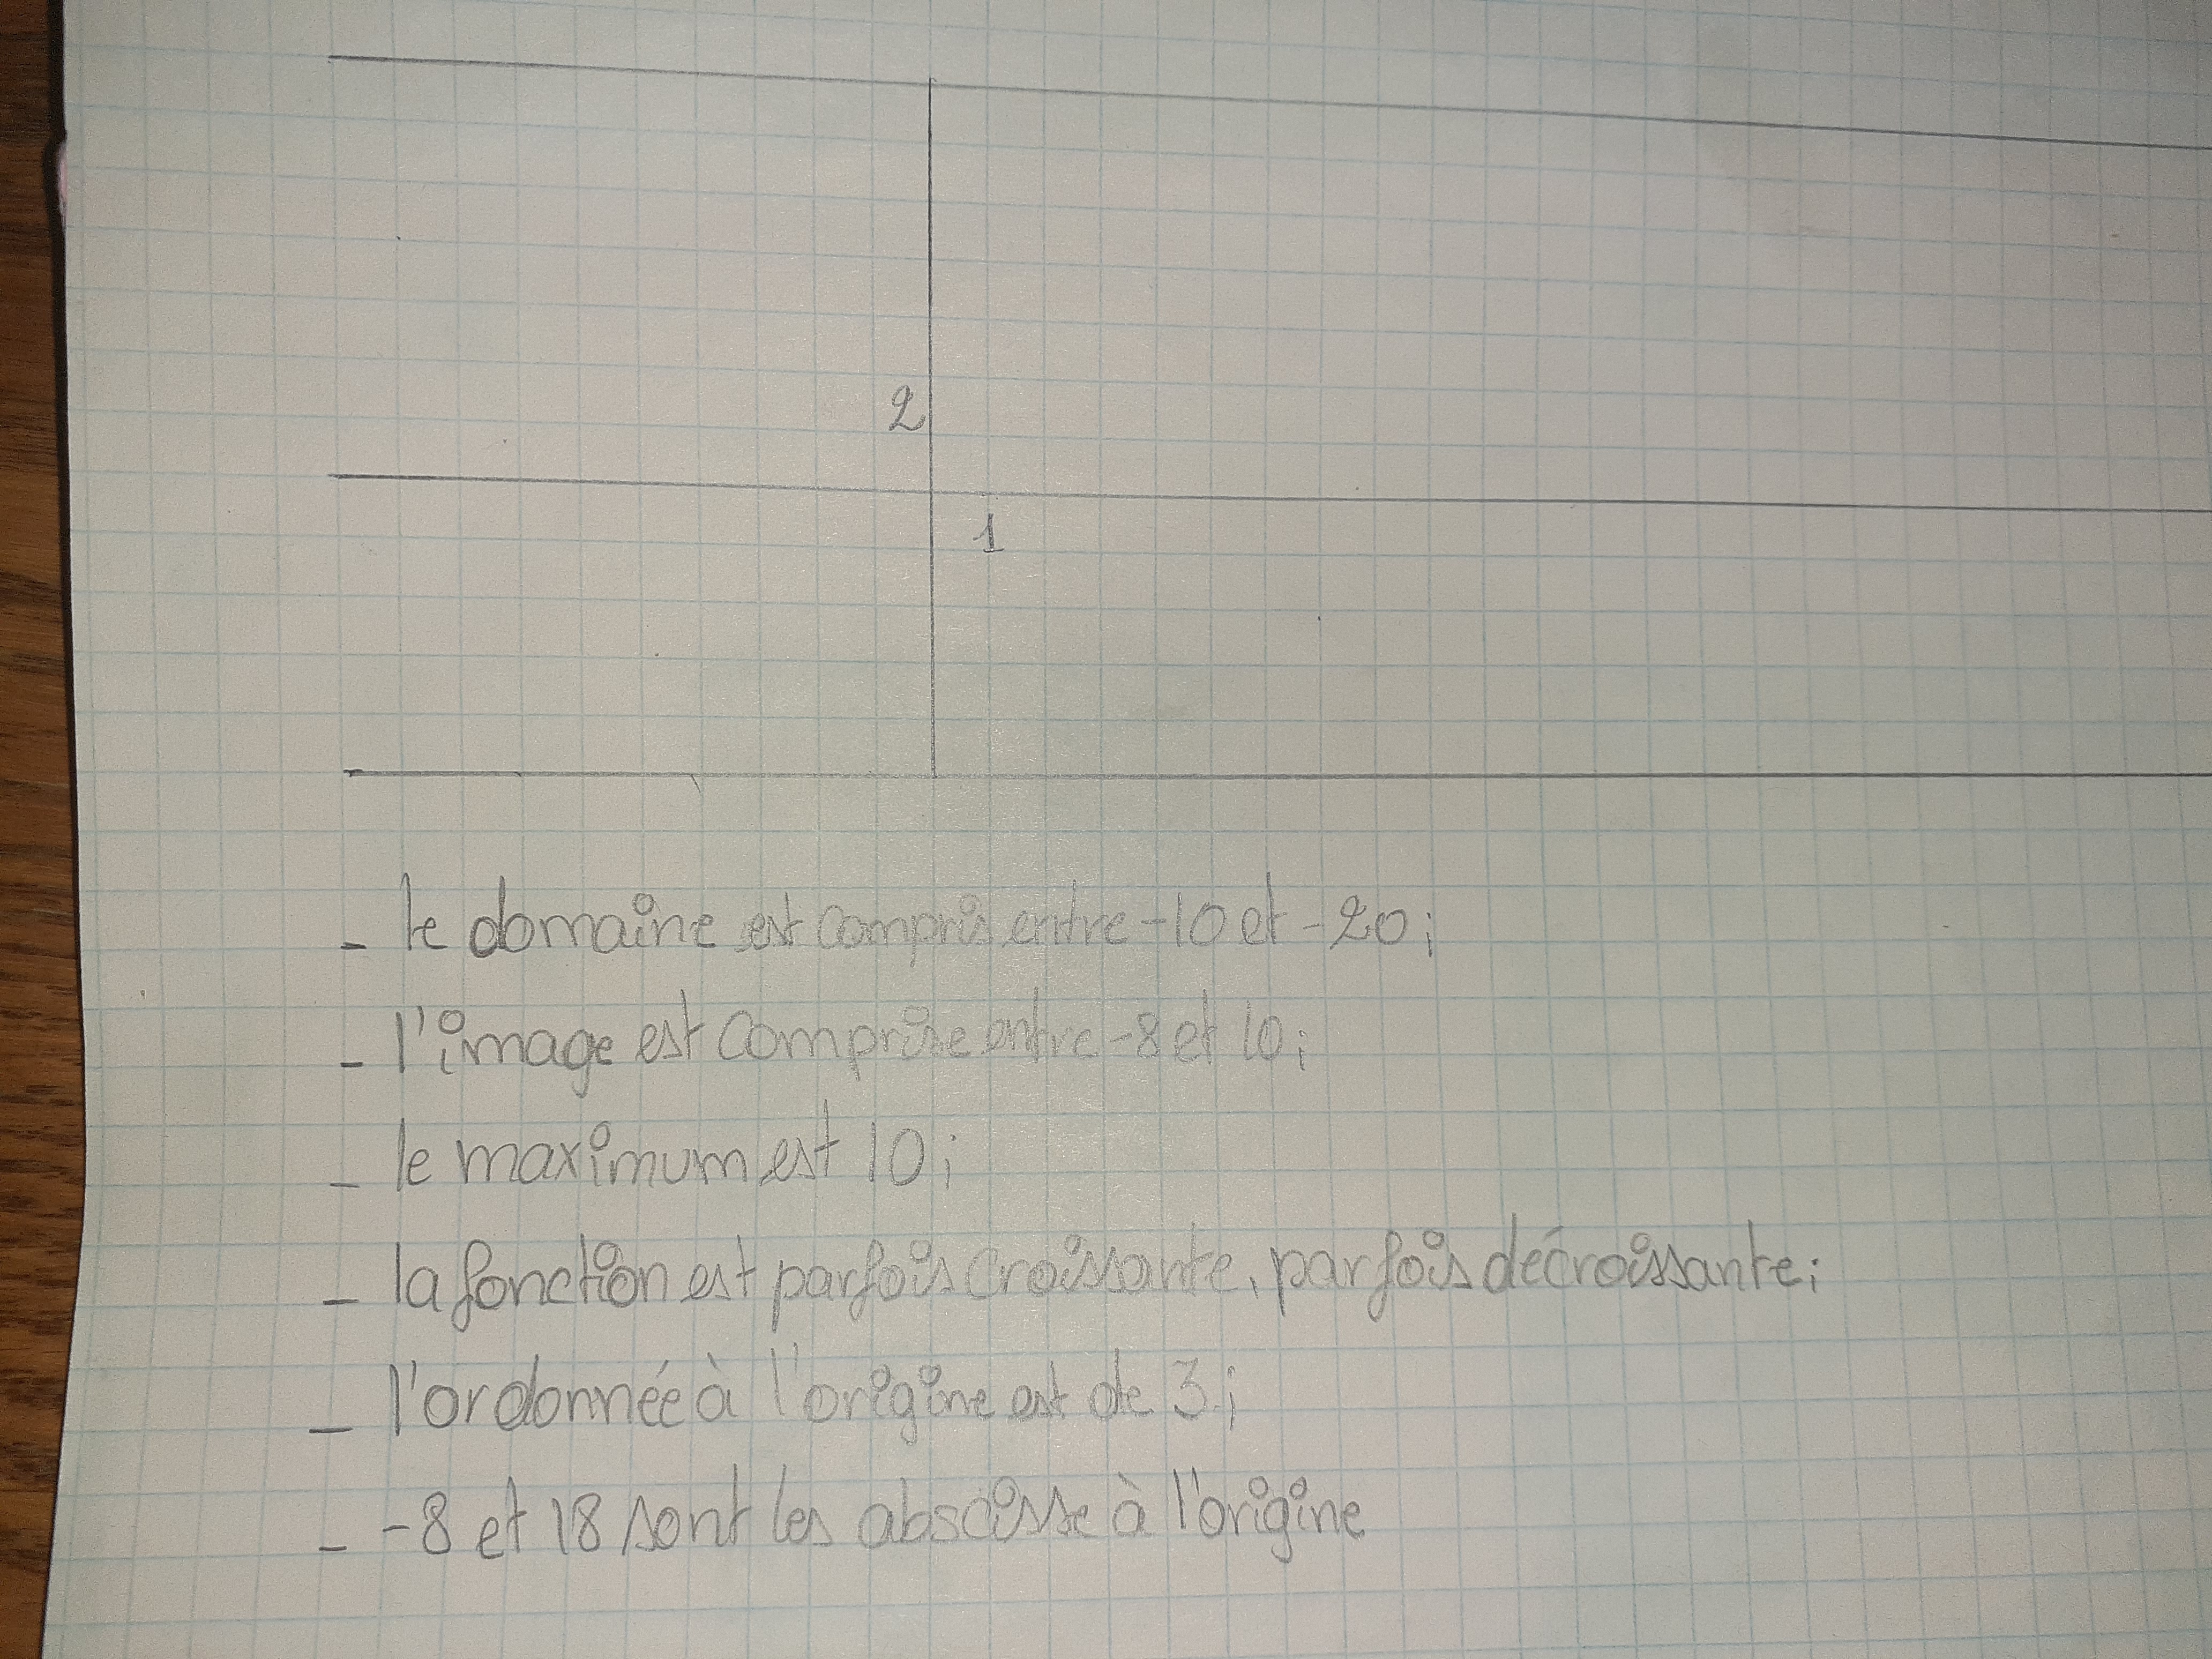 2
1
- le domaine est compris entre -10 et -20;
- l'image est comprise entre -8 et 10;
- le maximum est 10;
- la fonction est parfois croissante, parfois décroissante;
- l'ordonnée à l'origine est de 3;
- -8 et 18 sont les abscisse à l'origine